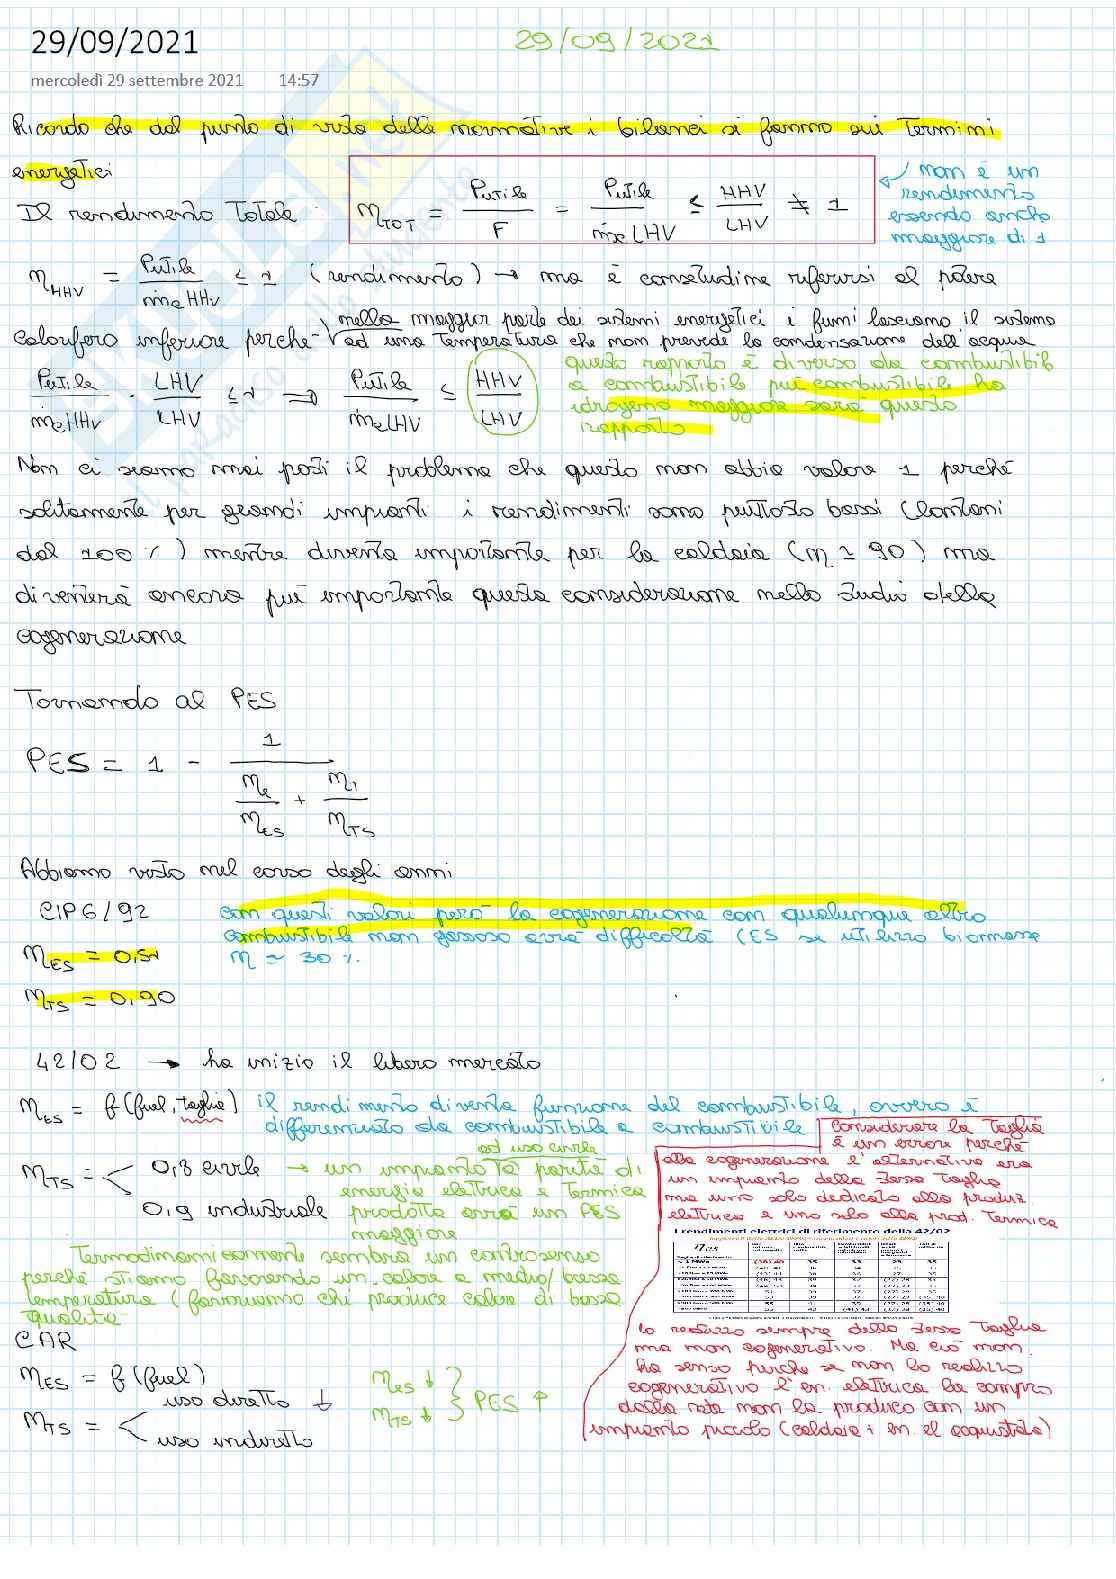 29/09/2021
29/09/2021
mercoledì 29 settembre 2021 14:57
Ricordo che dal punto di vista delle normative i bilanci si fanno sui Termini
energetici
Il rendimento Totale
η_TOT = Putile / F = Putile / ṁc LHV ≤ HHV / LHV ≠ 1
non è un
rendimento
essendo anche
maggiore di 1
η_HHV = Putile / ṁc HHV ≤ 1 (rendimento) → ma è consuetudine riferirsi al potere
calorifero inferiore perchè nella maggior parte dei sistemi energetici i fumi lasciano il sistema
ad una Temperatura che non prevede la condensazione dell'acqua
Putile / ṁc HHV · LHV / LHV ≤ 1 ⇒ Putile / ṁc LHV ≤ HHV / LHV
questo rapporto è diverso da combustibil
a combustibile più combustibile ha
idrogeno maggiore sarà questo
rapporto
Non ci siamo mai posti il problema che questo non abbia valore 1 perché
solitamente per grandi impianti i rendimenti sono piuttosto bassi (lontani
dal 100 %) mentre diventa importante per la caldaia (η ≃ 90) ma
diventerà ancora più importante questa considerazione nello studio della
cogenerazione
Tornando al PES
PES = 1 - 1 / (ηe / η_ES + ηT / η_TS)
Abbiamo visto nel corso degli anni
CIP6/92
con questi valori però la cogenerazione con qualunque altro
combustibile non gassoso avrà difficoltà (ES se utilizzo biomasse
η ≃ 30 %.
η_ES = 0,51
η_TS = 0,90
42/02 → ha inizio il libero mercato
η_ES = f(fuel, taglia) il rendimento diventa funzione del combustibile, ovvero è
differenziato da combustibile a combustibile
considerare la Taglia
è un errore perché
alla cogenerazione l'alternativa era
un impianto della stessa Taglia
ma uno solo dedicato alla produz
elettrica e uno solo alla prod. Termica
η_TS = < 0,8 civile
0,9 industriale
ad uso civile
→ un impianto a parità di
energia elettrica e Termica
prodotta avrà un PES
maggiore
Termodinamicamente sembra un controsenso
perchè stiamo favorendo un calore a medio/bassa
temperatura (favoriamo chi produce calore di bassa
qualità
I rendimenti elettrici di riferimento della 42/02
ηes
lo realizzo sempre della stessa Taglia
ma non cogenerativo. Ma ciò non
ha senso perchè se non lo realizzo
cogenerativo l'en. elettrica la compro
dalla rete non la produco con un
impianto piccolo (caldaia + en. el acquistata)
CAR
η_ES = f(fuel)
η_TS = < uso diretto ↓
uso indiretto
ηES ↓
ηTS ↓ } PES ↑